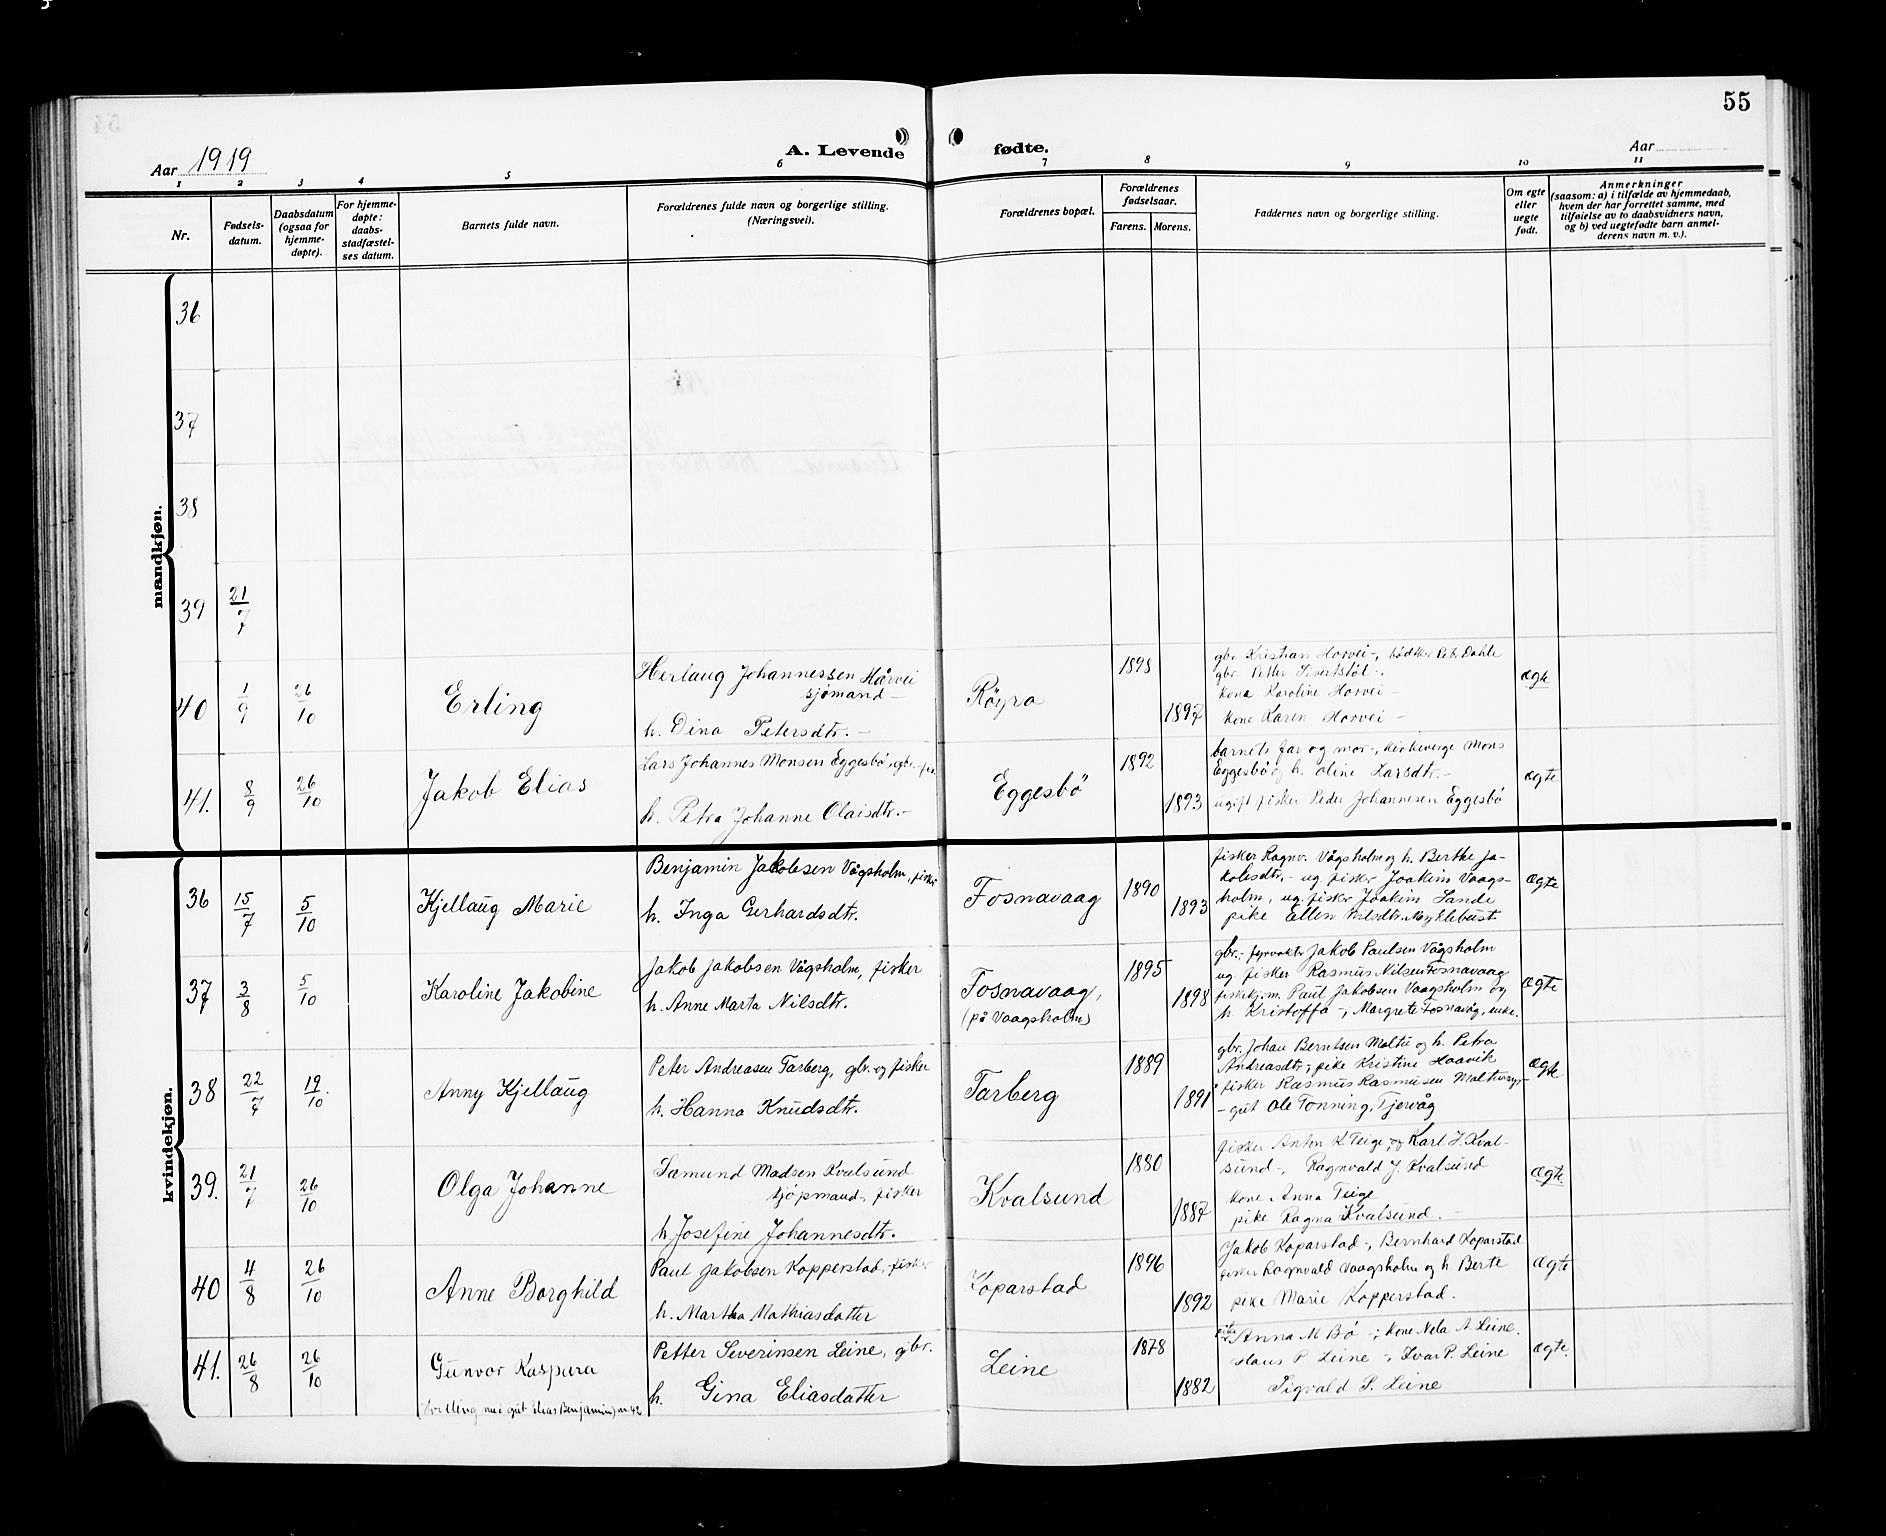 55
Aar 1919
A. Levende
fødte.
Aar
1 2 3 4 5 6 7 8 9 10 11
Nr.
Fødsels-
datum.
Daabsdatum
(ogsaa for
hjemme-
døpte).
For hjemme-
døpte:
daabs-
stadfæstel-
ses datum.
Barnets fulde navn.
Forældrenes fulde navn og borgerlige stilling.
(Næringsvei).
Forældrenes bopæl.
Forældrenes
fødselsaar.
Farens. Morens.
Faddernes navn og borgerlige stilling.
Om egte
eller
uegte
født.
Anmerkninger
(saasom: a) i tilfælde av hjemmedaab,
hvem der har forrettet samme, med
tilføielse av to daabsvidners navn,
og b) ved uegtefødte barn anmel-
derens navn m. v.).
mandkjøn.
36
37
38
39 21/7
40 1/9 26/10
Erling
Herlaug Johannessen Hårvei
sjømand -
h. Dina Petersdtr. -
Røyra
1898
1897
gbr. Kristian Horvei -, bødker Petr. Dahle
gbr. Petter Sivertstøl -.
kona Karoline Horvei -
kone Karen Horvei -
ægte
41. 8/9 26/10
Jakob Elias
Lars Johannes Monsen Eggesbø, gbr. -
h. Petra Johanne Olaisdtr. -
Eggesbö
1892
1893
barnets far og mor -, kirkeverge Mons
Eggesbø og h. Oline Larsdtr. -
ugift fisker Peder Johannesen Eggesbö
ægte
kvindekjøn.
36 15/7 5/10
Kjellaug Marie
Benjamin Jakobsen Vågsholm, fisker
h. Inga Gerhardsdtr.
Fosnavaag
1890
1893
fisker Ragnv. Vågsholm og h. Berthe Ja-
kobsdtr. - ug fisker Joakim Vaags-
holm, ug. fisker Joakim Sande
pike Ellen Nilsdtr. Myklebust.
ægte
37 3/8 5/10
Karoline Jakobine
Jakob Jakobsen Vågsholm, fisker
h. Anne Marta Nilsdtr.
Fosnavaag,
(på Vaagsholm)
1895
1898
gbr. - fyrvokter Jakob Paulsen Vågsholm
ug fisker Rasmus Nilsen Fosnavaag
Paul Jakobsen Vaagsholm og
h. Kristoffa -, Margrete Fosnavåg, enke.
ægte
38 22/7 19/10
Anny Kjellaug
Peter Andreasen Tarberg, gbr. og fisker
h. Hanna Knudsdtr.
Tarberg
1889
1891
gbr. Johan Berntsen Moltu og h. Petra
Andreasdtr -, pike Kristine Haavik
fisker Rasmus Rasmusen
- gut Ole Tonning, Tjervåg
ægte
39. 21/7 26/10
Olga Johanne
Samund Madsen Kvalsund
kjøpmand -, fisker
h. Josefine Johannesdtr.
Kvalsund
1880
1887
fisker Anton K. Teige, og Karl J. Kval-
sund -, Ragnvald J. Kvalsund
kone Anna Teige
pike Ragna Kvalsund. -
ægte
40 4/8 26/10
Anne Borghild
Paul Jakobsen Kopperstad, fisker
h. Martha Mathiasdatter
Koparstad
1896
1892
Jakob Koparstad -, Bernhard Koparstad
fisker Ragnvald Vaagsholm og h Berte
pike Marie Kopperstad.
ægte
41. 26/8 26/10
Gunvor Kaspara
(tvilling med gut Elias Benjamin) nr. 42
Petter Severinsen Leine, gbr.
h. Gina Eliasdatter
Leine
1878
1882
pike Anna M Bö -; Kone Nela A Leine.
Hans P. Leine -, Ivar P. Leine
Sigvald P. Leine
ægte.